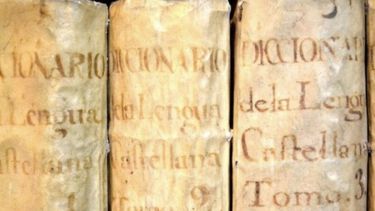 CCIONARIO
la Lengua
astellana
1
DICCIONARIO
de la Lengua
Castellana
Tomo. 2.
DICCIONAR
de la Leng
Castellana
Tomo. 3.